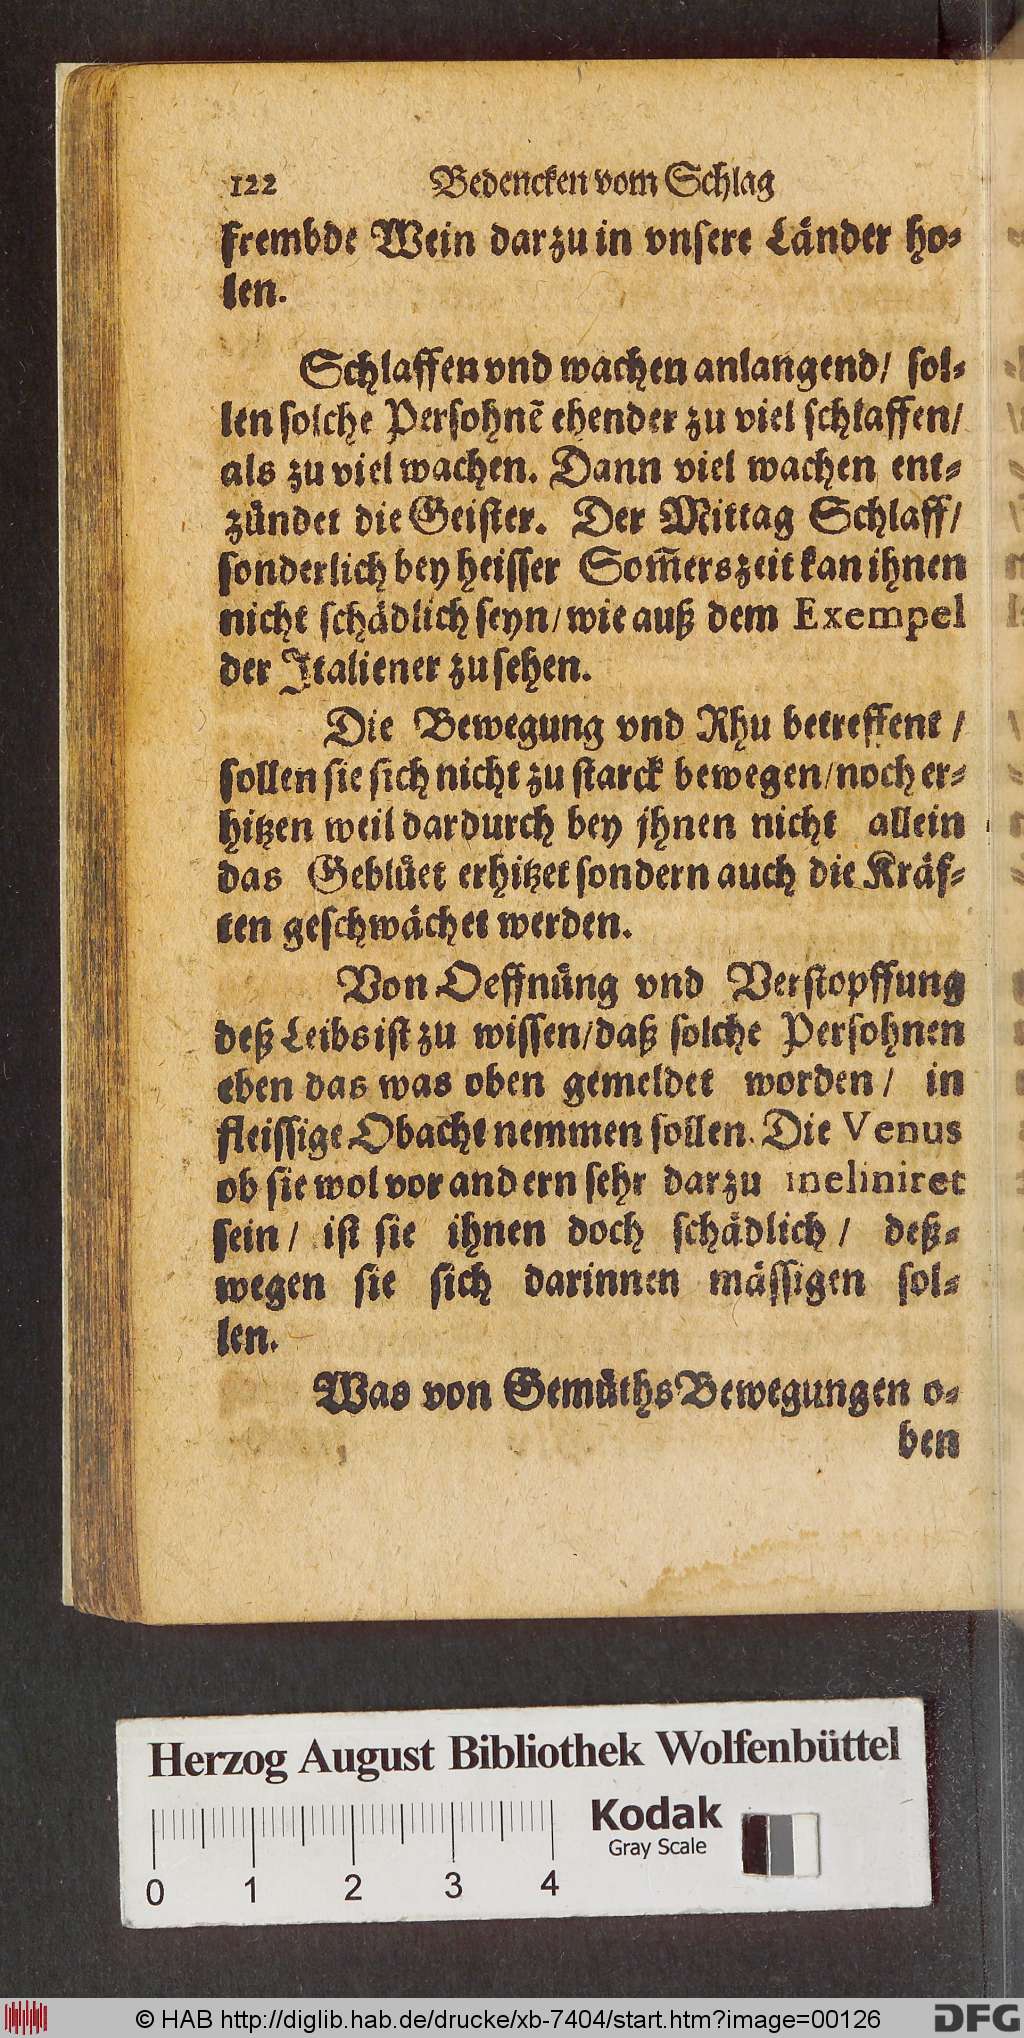 122 Bedencken vom Schlag
frembde Wein darzu in vnsere Länder ho-
len.
Schlaffen vnd wachen anlangend/ sol-
len solche Persohnẽ ehender zu viel schlaffen/
als zu viel wachen. Dann viel wachen ent-
zündet die Geister. Der Mittag Schlaff/
sonderlich bey heisser Som̃erszeit kan ihnen
nicht schädlich seyn/ wie auß dem Exempel
der Italiener zu sehen.
Die Bewegung vnd Rhu betreffent/
sollen sie sich nicht zu starck bewegen/ noch er-
hitzen weil dardurch bey jhnen nicht allein
das Geblüet erhitzet sondern auch die Kräf-
ten geschwächet werden.
Von Oeffnüng vnd Verstopffung
deß Leibs ist zu wissen/ daß solche Persohnen
eben das was oben gemeldet worden/ in
fleissige Obacht nemmen sollen. Die Venus
ob sie wol vor andern sehr darzu ineliniret
sein/ ist sie ihnen doch schädlich/ deß-
wegen sie sich darinnen mässigen sol-
len.
Was von Gemüths Bewegungen o-
ben
Herzog August Bibliothek Wolfenbüttel
Kodak
Gray Scale
0 1 2 3 4
© HAB http://diglib.hab.de/drucke/xb-7404/start.htm?image=00126
DFG